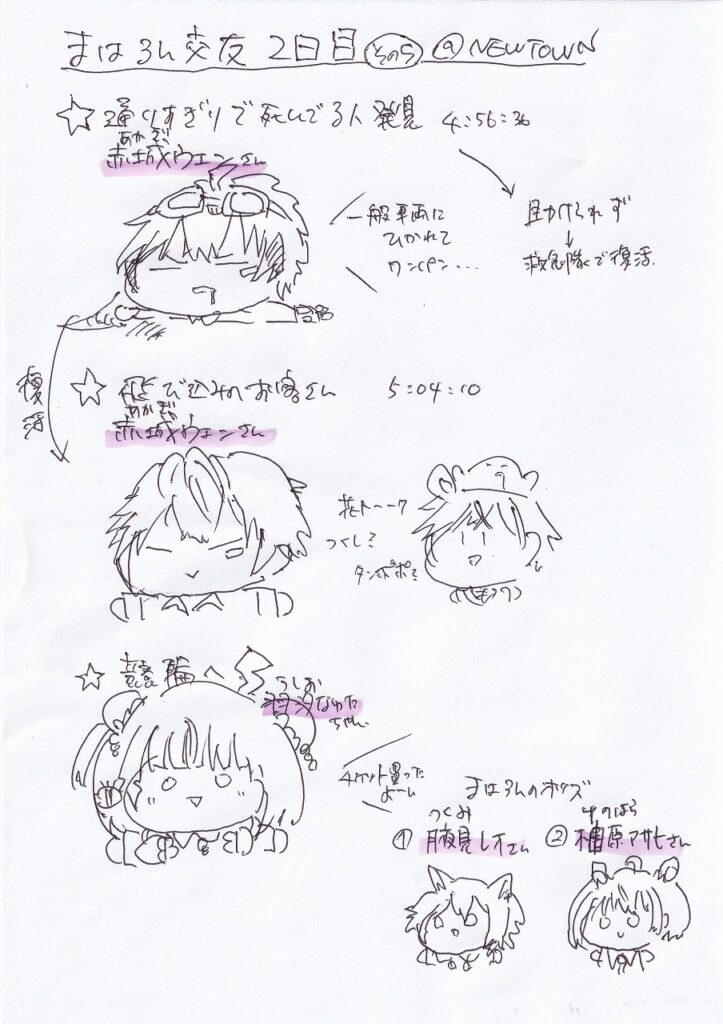 まはろん交友 2日目 その5 @NEWTOWN
☆通りすぎりで死んでる人発見 4:56:36
あかぎ
赤城ウェンさん
一般車両に
ひかれて
ワンパン...
助けられず
↓
救急隊で復活
復活
☆飛び込みのお客さん 5:04:10
あかぎ
赤城ウェンさん
花トーーク
つくしと
タンポポと
☆競輪へ
うしお
なゆた
ちゃん
チケット買った
よーん
まはろんのオッズ
つくみ
① 腋見レイさん
ゆのはら
② 柚原アサヒさん